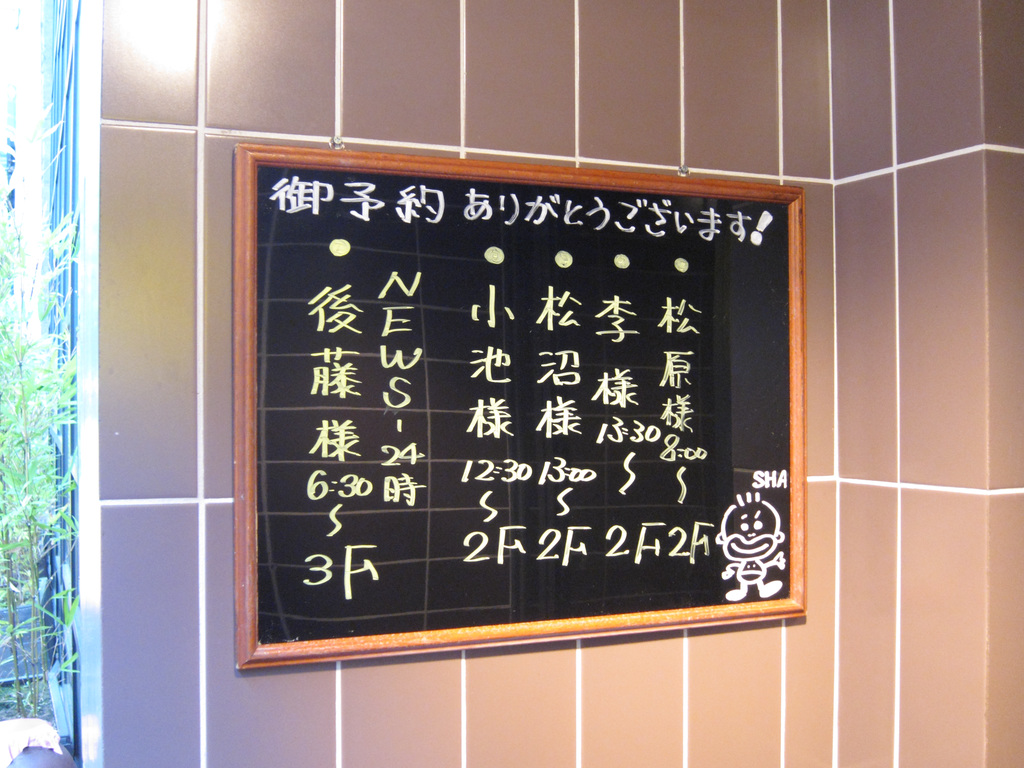 御予約 ありがとうございます!
松原様 8:00〜 2F
李様 13:30〜 2F
松沼様 13:00〜 2F
小池様 12:30〜 2F
NEWS-24時
後藤様 6:30〜 3F
SHA